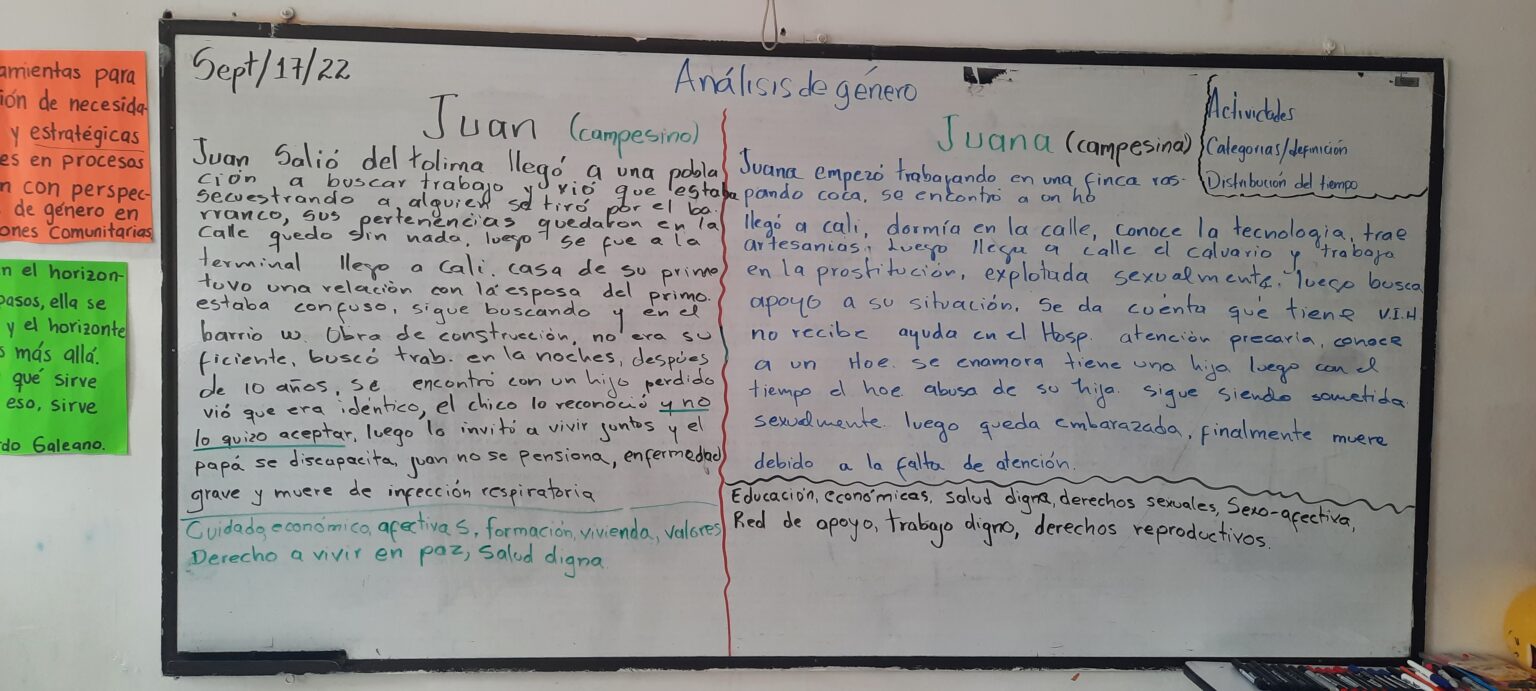 amientas para
ión de necesida-
y estratégicas
es en procesos
n con perspec-
de género en
ones comunitarias
n el horizon-
pasos, ella se
y el horizonte
s más allá.
qué sirve
eso, sirve
do Galeano.
Sept/17/22
Análisis de género
Juan (campesino)
Juan Salió del tolima llegó a una pobla
ción a buscar trabajo y vió que estaba
secuestrando a alguien se tiró por el ba
rranco, sus pertenencias quedaron en la
calle quedo sin nada, luego se fue a la
terminal llego a Cali. casa de su primo
tuvo una relación con la esposa del primo.
estaba confuso, sigue buscando y en el
barrio w. Obra de construcción, no era su
ficiente, buscó trab. en la noches, despúes
de 10 años, se encontró con un hijo perdido
vió que era identico, el chico lo reconoció y no
lo quizo aceptar, luego lo invitó a vivir juntos y el
papá se discapacita, juan no se pensiona, enfermedad
grave y muere de infección respiratoria
Cuidado, económico, afectivas, formación, vivienda, valores
Derecho a vivir en paz, Salud digna
Juana (campesina)
Juana empezó trabajando en una finca ras-
pando coca, se encontró a un ho
llegó a cali, dormía en la calle, conoce la tecnologia, trae
artesanías, Luego llega a calle el calvario y trabaja
en la prostitución, explotada sexualmente, luego busca
apoyo a su situación, Se da cuenta que tiene V.I.H
no recibe ayuda en el Hosp. atención precaria, conoce
a un Hoe. se enamora tiene una hija luego con el
tiempo el hoe. abusa de su hija. sigue siendo sometida
sexualmente luego queda embarazada, finalmente muere
debido a la falta de atención.
Educación, económicas, salud digna, derechos sexuales, Sexo-afectiva,
Red de apoyo, trabajo digno, derechos reproductivos.
Actividades
Categorias/definición
Distribución del tiempo